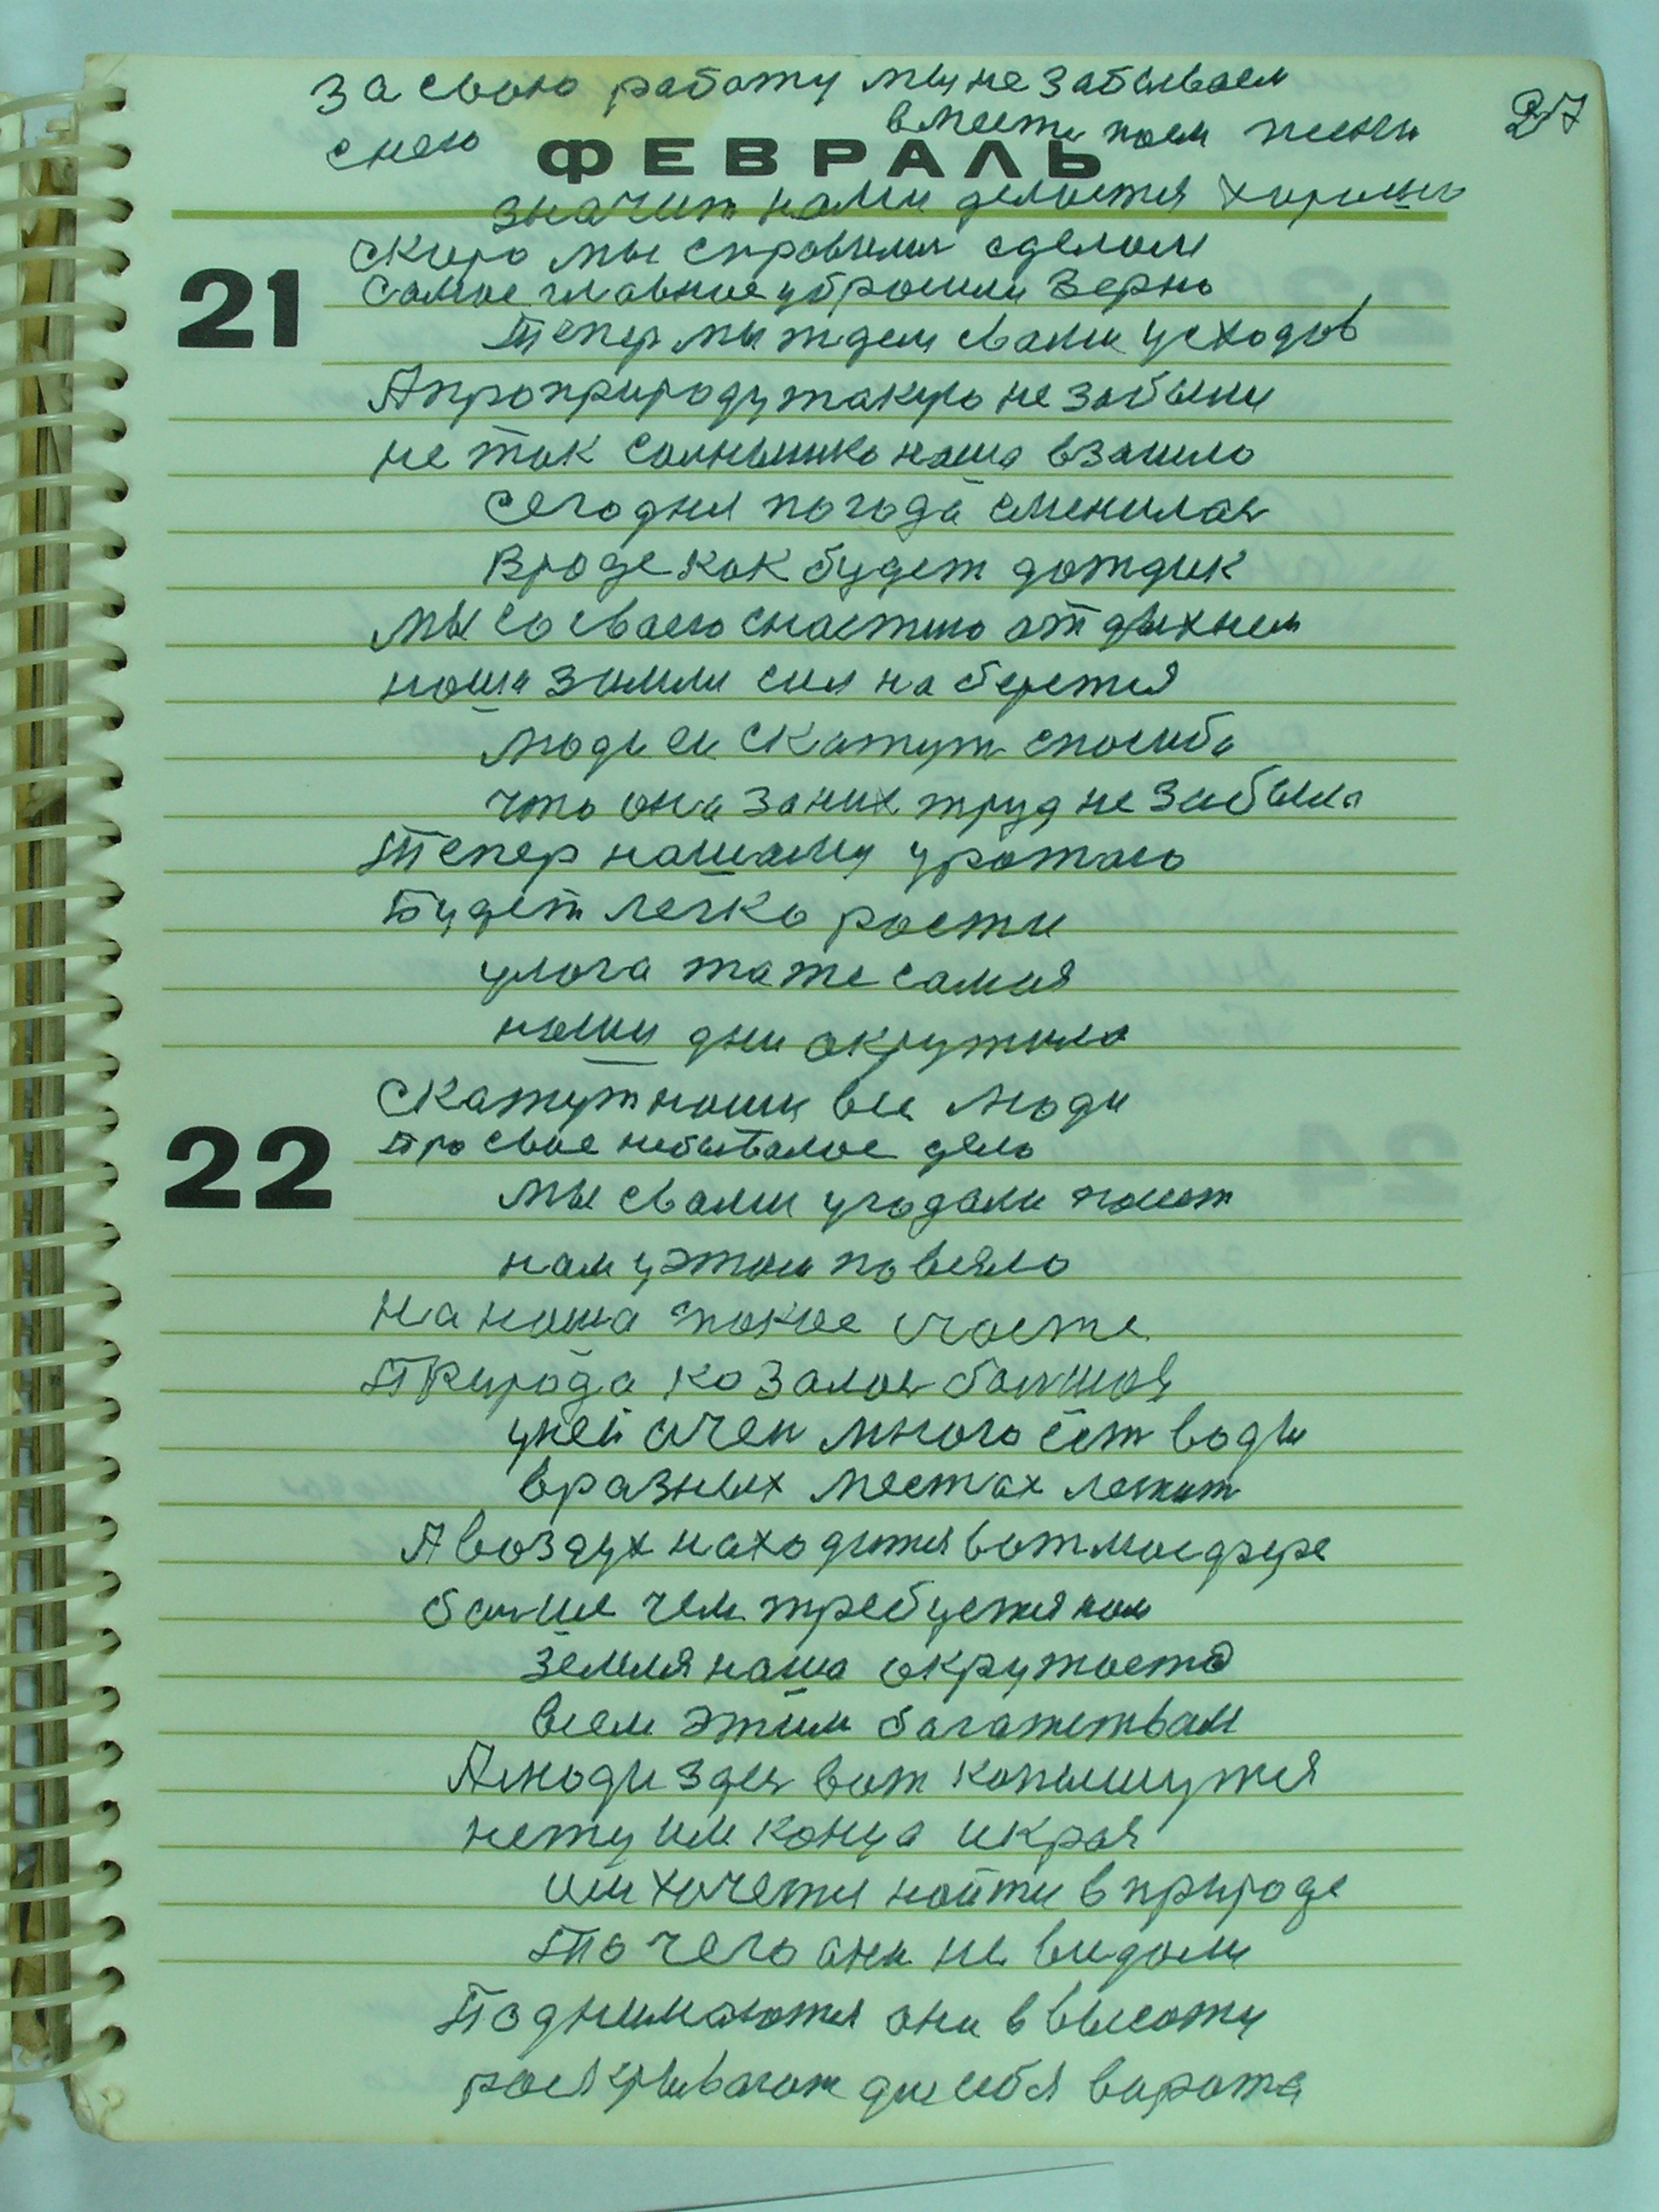 27
за свою работу мы не забываем
с нею вместе поем песни
ФЕВРАЛЬ
значит нами делается хорошо
скоро мы справимся сделаем
21
самое главное убрашли зерно
Тепер мы ждем свами усходов
А про природу такую не забыли
не так солнышко наша взашло
сегодня погода сменилась
Вроде как будет дождик
мы со сваего счастию отдыхнем
наша земля сил на берется
люди ей скажут спосиба
что она за них труд не забыла
Тепер нашаму урожаю
Будет легко рости
улога таже самая
наши дни окружила
Скажут наши все люди
22
про свое небывалое дело
мы свами угодали
нам у этом повеяло
На наша такое счасте
Природа козалась большая
у ней очен много ест воды
в разных местах лежит
А воздух находится ватмосфере
болше чем требуется нам
Земля наша окружаета
всем этим богатетвам
А люди здес вот копышутся
нету им конца и края
им хочется найти в природе
То чего они не видали
Поднимаются они в высоту
роскрывают для себя варота